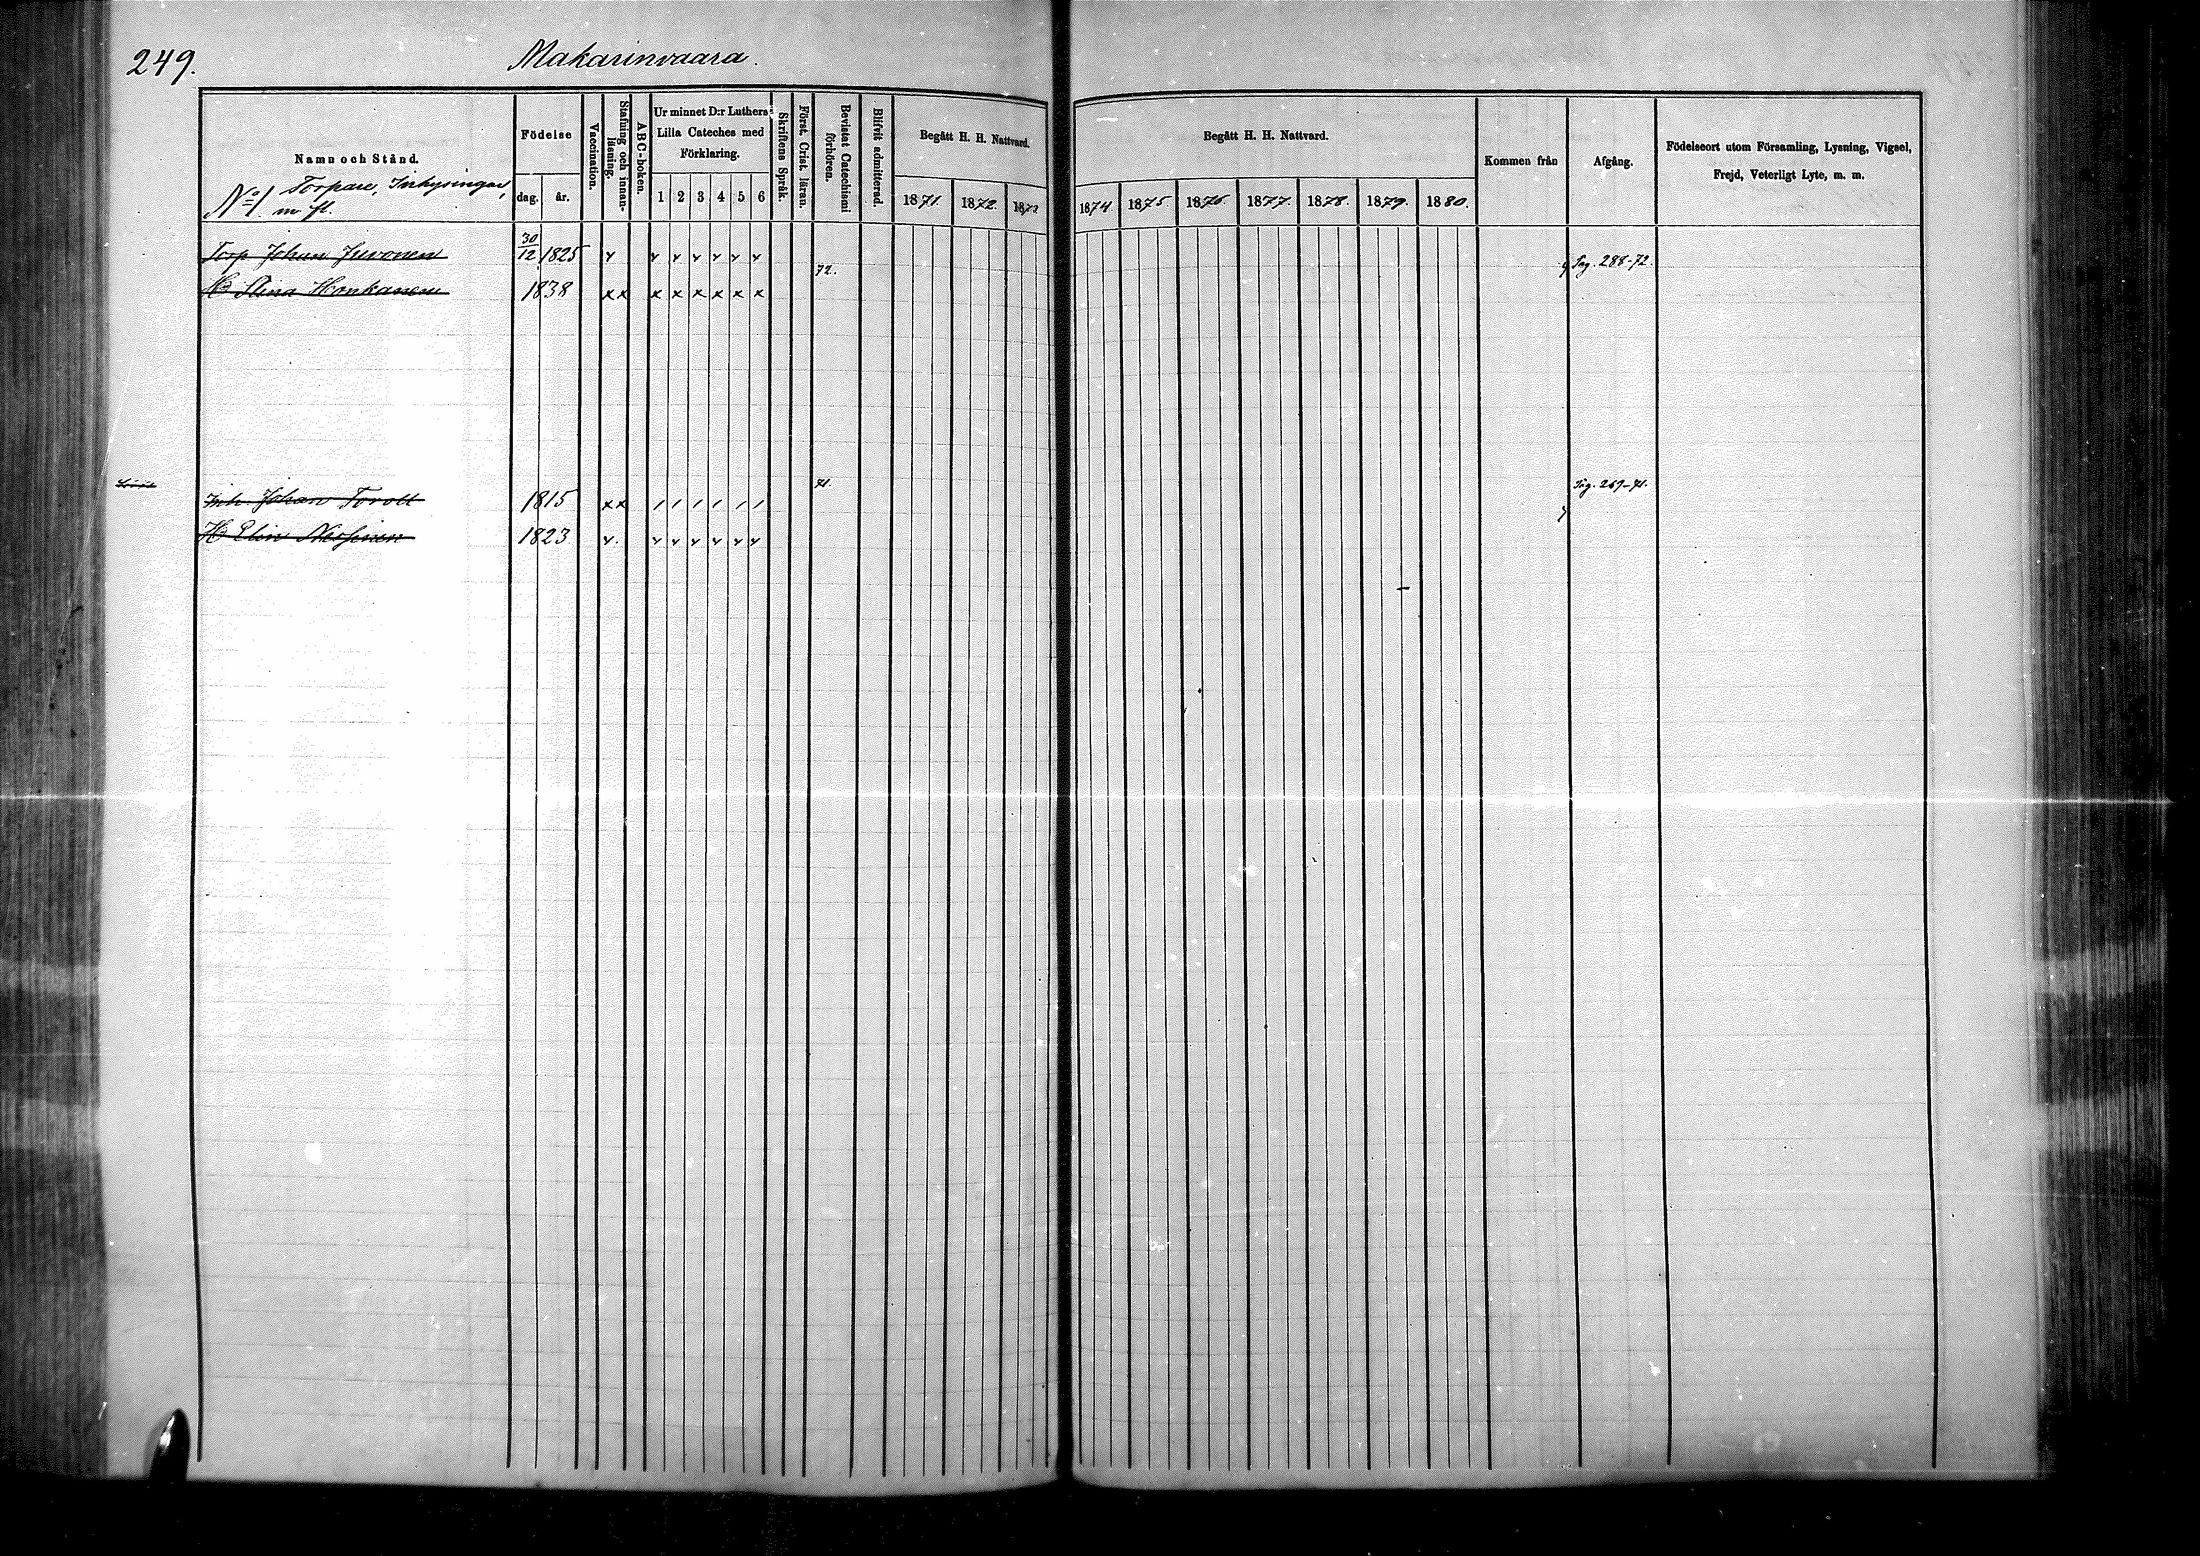 249.
Makarinvaara.
Namn och Stånd.
No 1. Torpare, Inhysingar,
m fl.
Födelse
dag. år.
Vaccination.
Stafning och innan-
läsning.
ABC-boken.
Ur minnet D:r Luthers
Lilla Cateches med
Förklaring.
1 2 3 4 5 6
Skriftens Språk.
Först. Crist. läran.
Bevistat Catechismi
förhören.
Blifvit admitterad.
Begått H. H. Nattvard.
1871. 1872. 1873
Begått H. H. Nattvard.
1874. 1875. 1876. 1877. 1878. 1879. 1880.
Kommen från
Afgång.
Födelseort utom Församling, Lysning, Vigsel,
Frejd, Veterligt Lyte, m. m.
Torp Johan Juvonen 30/12 1825 v v v v v v v
72. Pag. 288-72.
H Stina Honkanen 1838 x x x x x x x x
71. Pag. 269-71.
Inh. Johan Torvelt 1815 x x / / / / / /
H Elin Nessinen 1823 v. v v v v v v